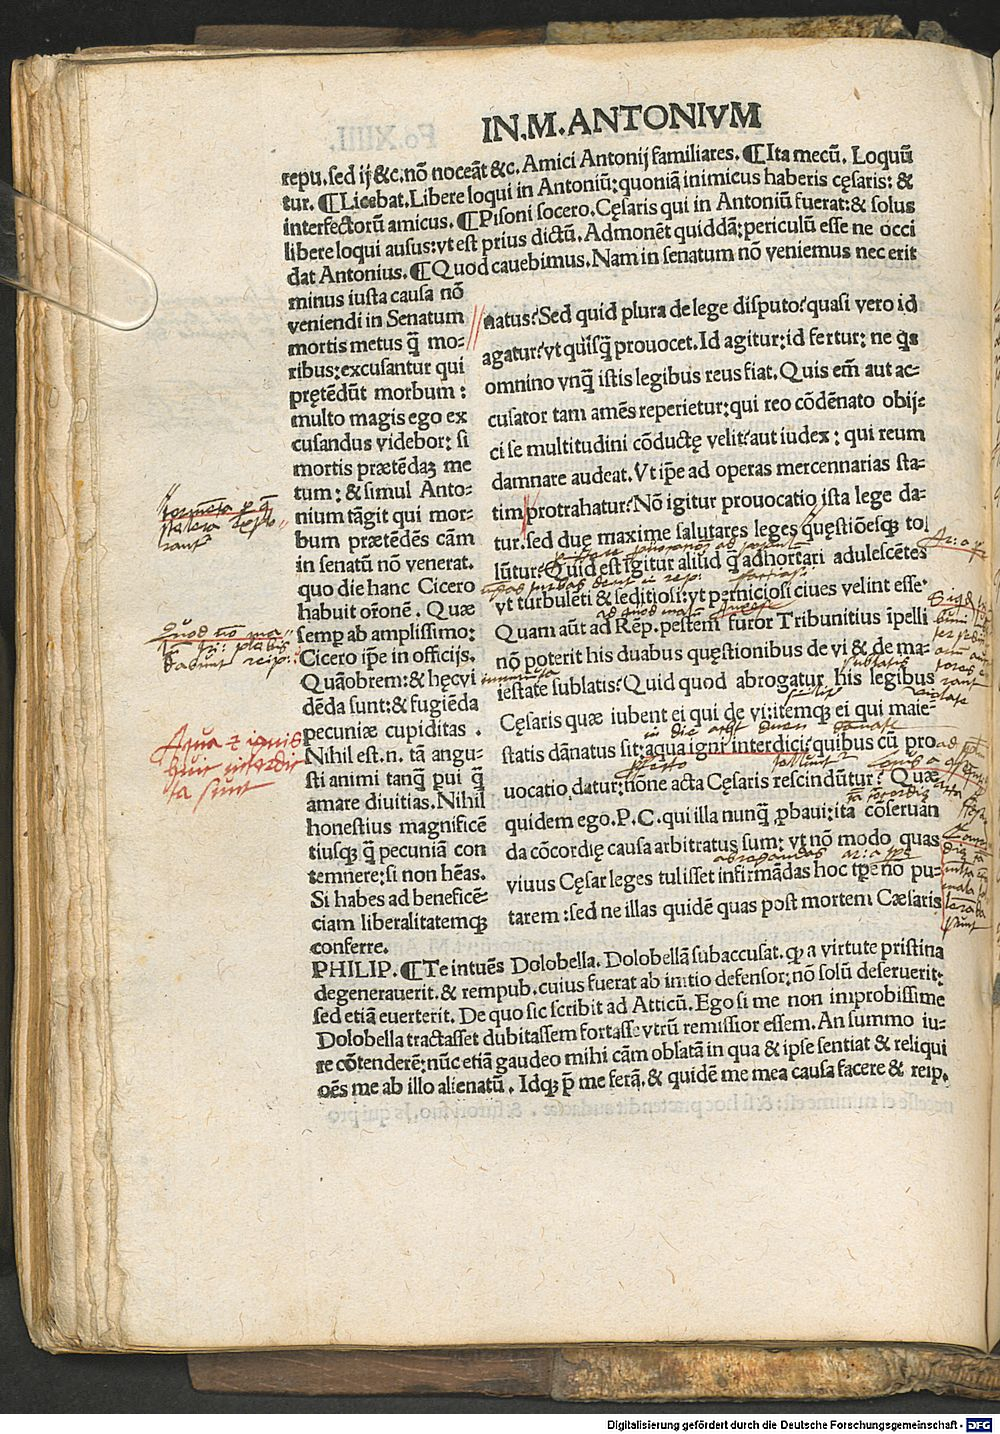 IN.M.ANTONIVM
repu.sed ij &c.nõ noceãt &c. Amici Antonij familiares. ¶Ita mecũ. Loquũ
tur. ¶Licebat.Libere loqui in Antoniũ:quoniã inimicus haberis cęsaris: &
interfectorũ amicus. ¶Pisoni socero.Cęsaris qui in Antoniũ fuerat:& solus
libere loqui ausus:vt est prius dictũ. Admonẽt quiddã:periculũ esse ne occi
dat Antonius. ¶Quod cauebimus.Nam in senatum nõ veniemus nec erit
minus iusta causa nõ
veniendi in Senatum
mortis metus q̃ mo-
ribus:excusantur qui
prętẽdũt morbum :
multo magis ego ex
cusandus videbor: si
mortis prætẽdaꝫ me
tum : & simul Anto-
nium tãgit qui mor-
bum prætẽdẽs cãm
in senatũ nõ venerat.
quo die hanc Cicero
habuit orõnẽ . Quæ
semp ab amplissimo:
Cicero ip̃e in officijs.
Quãobrem:& hęc vi
dẽda sunt:& fugiẽda
pecuniæ cupiditas .
Nihil est.n. tã angu-
sti animi tanq̃ pui q̃
amare diuitias. Nihil
honestius magnificẽ
tiusqꝫ q̃ pecuniã con
temnere:si non hẽas.
Si habes ad beneficẽ-
ciam liberalitatemqꝫ
conferre.
natus? Sed quid plura de lege disputo? quasi vero id
agatur? vt quisq̃ prouocet. Id agitur:id fertur: ne q̃s
omnino vnq̃ istis legibus reus fiat. Quis em̃ aut ac-
cusator tam amẽs reperietur:qui reo cõdẽnato obij-
ci se multitudini cõductę velit? aut iudex : qui reum
damnare audeat. Vt ip̃e ad operas mercennarias sta-
tim protrahatur? Nõ igitur prouocatio ista lege da-
tur. sed duę maxime salutares leges quęstiõesqꝫ tol
lũtur? Quid est igitur aliud q̃ adhortari adulescẽtes
vt turbulẽti & seditiosi:vt perniciosi ciues velint esse?
Quam aũt ad Rẽp. pestẽm furor Tribunitius ĩpelli
nõ poterit his duabus quęstionibus de vi & de ma-
iestate sublatis? Quid quod abrogatur his legibus
Cęsaris quæ iubent ei qui de vi:itemqꝫ ei qui maie-
statis dãnatus sit:aqua igni interdici? quibus cũ pro
uocatio datur:nõne acta Cęsaris rescindũtur? Quæ
quidem ego.P.C. qui illa nunq̃ ꝓbaui:ita cõseruan
da cõcordię causa arbitratus sum: vt nõ modo quas
viuus Cęsar leges tulisset infirmãdas hoc tpe nõ pu-
tarem :sed ne illas quidẽ quas post mortem Cæsaris
PHILIP. ¶Te intuẽs Dolobella. Dolobellã subaccusat. qꝫ a virtute pristina
degenerauerit. & rempub. cuius fuerat ab initio defensor:nõ solũ deseruerit:
sed etiã euerterit. De quo sic scribit ad Atticũ. Ego si me non improbissime
Dolobella tractasset dubitassem fortasse vtrũ remissior essem. An summo iu-
re cõtenderẽ:nũc etiã gaudeo mihi cãm oblatã in qua & ipse sentiat & reliqui
oẽs me ab illo alienatũ . Idqꝫ p̃ me ferã, & quidẽ me mea causa facere & reip.
Aqua et ignis
huic interdic
ta sunt
Digitalisierung gefördert durch die Deutsche Forschungsgemeinschaft - DFG